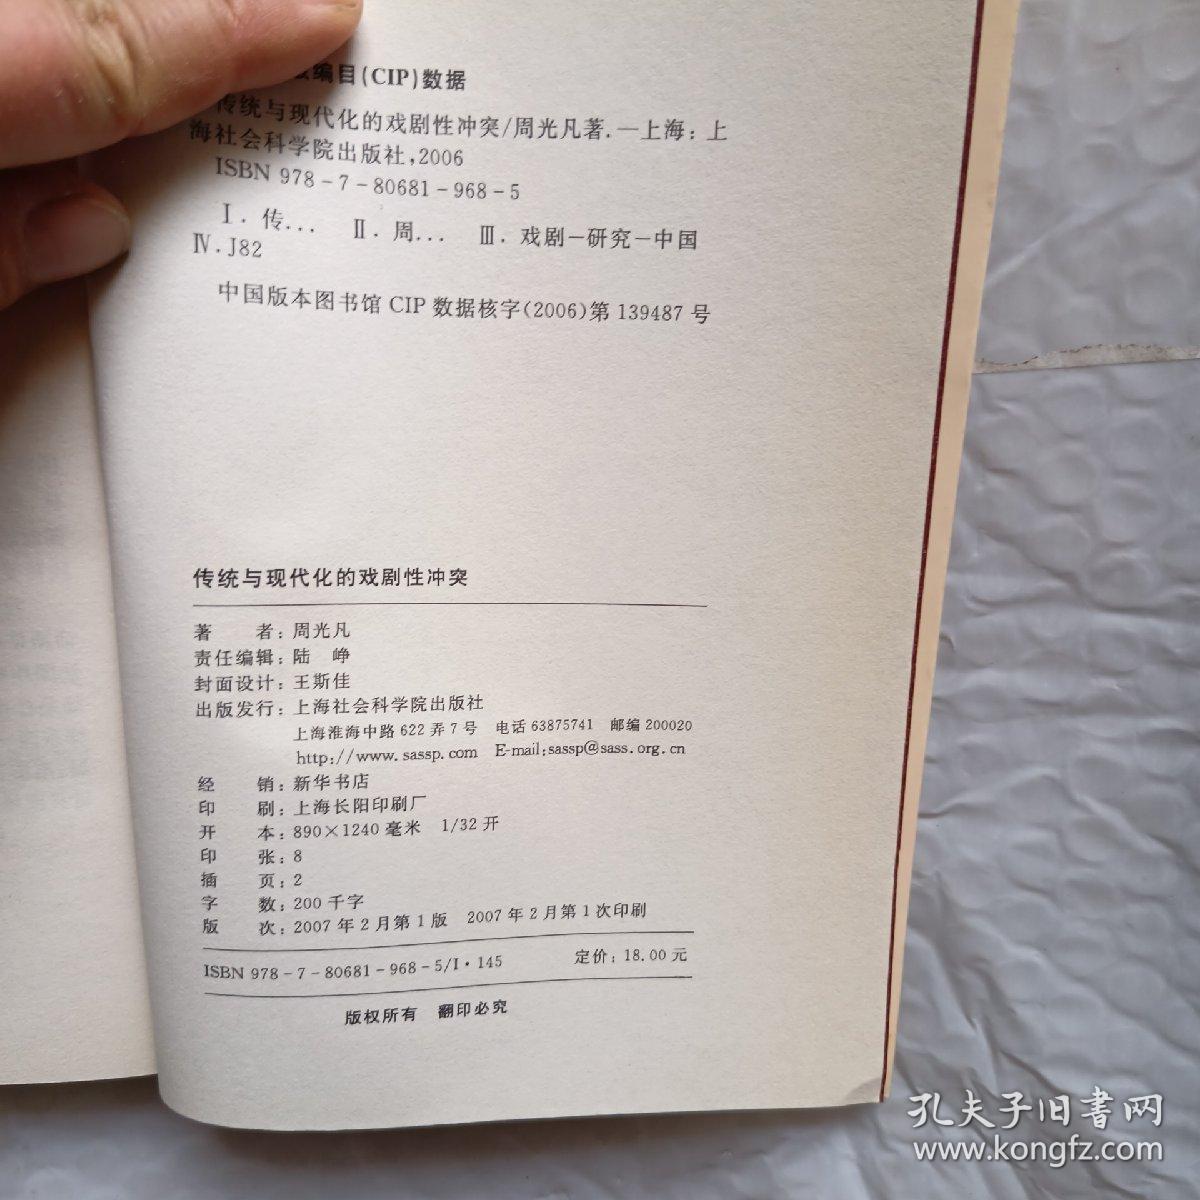 编目(CIP)数据
传统与现代化的戏剧性冲突/周光凡著.—上海:上
海社会科学院出版社,2006
ISBN 978-7-80681-968-5
Ⅰ.传... Ⅱ.周... Ⅲ.戏剧-研究-中国
Ⅳ.J82
中国版本图书馆 CIP 数据核字(2006)第 139487 号
传统与现代化的戏剧性冲突
著 者:周光凡
责任编辑:陆 峥
封面设计:王斯佳
出版发行:上海社会科学院出版社
上海淮海中路 622 弄 7 号 电话 63875741 邮编 200020
http://www.sassp.com E-mail:sassp@sass.org.cn
经 销:新华书店
印 刷:上海长阳印刷厂
开 本:890×1240 毫米 1/32 开
印 张:8
插 页:2
字 数:200 千字
版 次:2007 年 2 月第 1 版 2007 年 2 月第 1 次印刷
ISBN 978-7-80681-968-5/I·145 定价:18.00 元
版权所有 翻印必究
孔夫子旧书网
www.kongfz.com